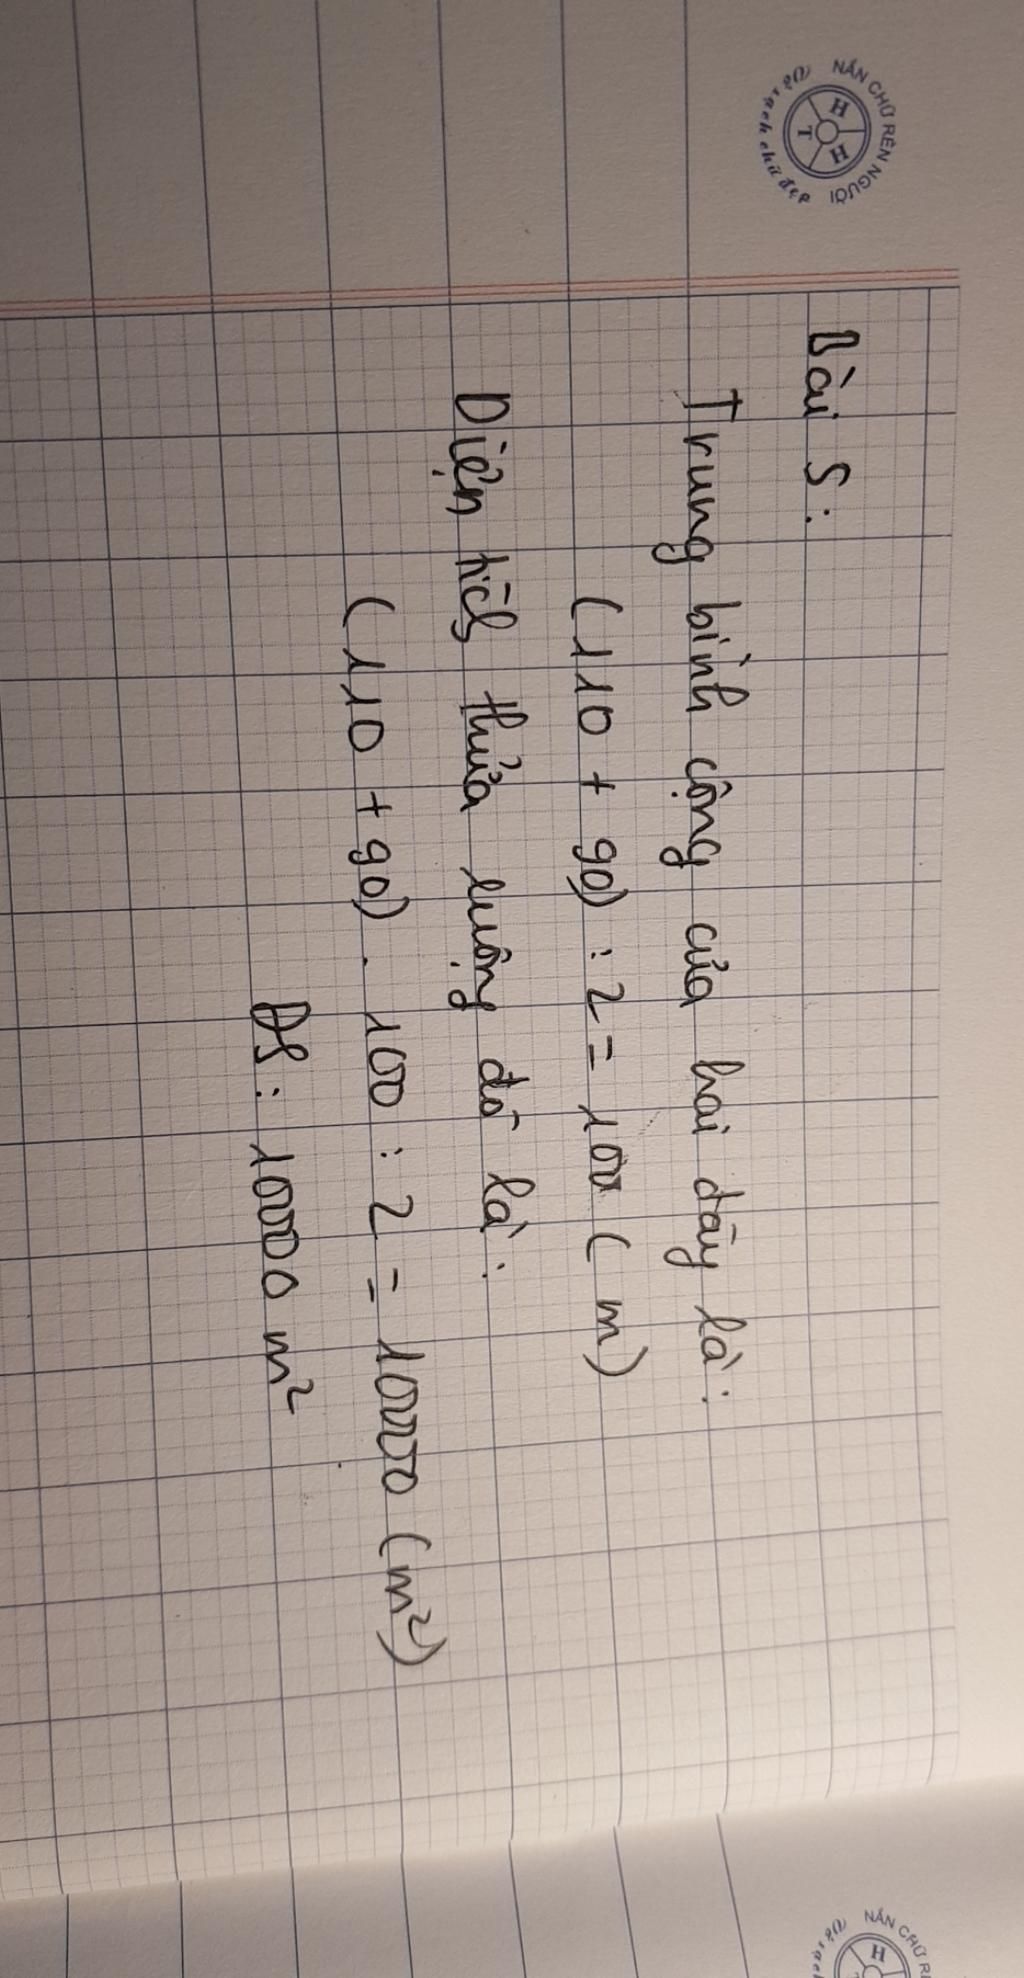 NẮN CHỮ RÈN NGƯỜI
H H T
Bài 5:
Trung bình cộng của hai đáy là:
(110 + 90) : 2 = 100 (m)
Diện tích thửa ruộng đó là:
(110 + 90) . 100 : 2 = 10000 (m²)
ĐS: 10000 m²
NẮN CHỮ R
H